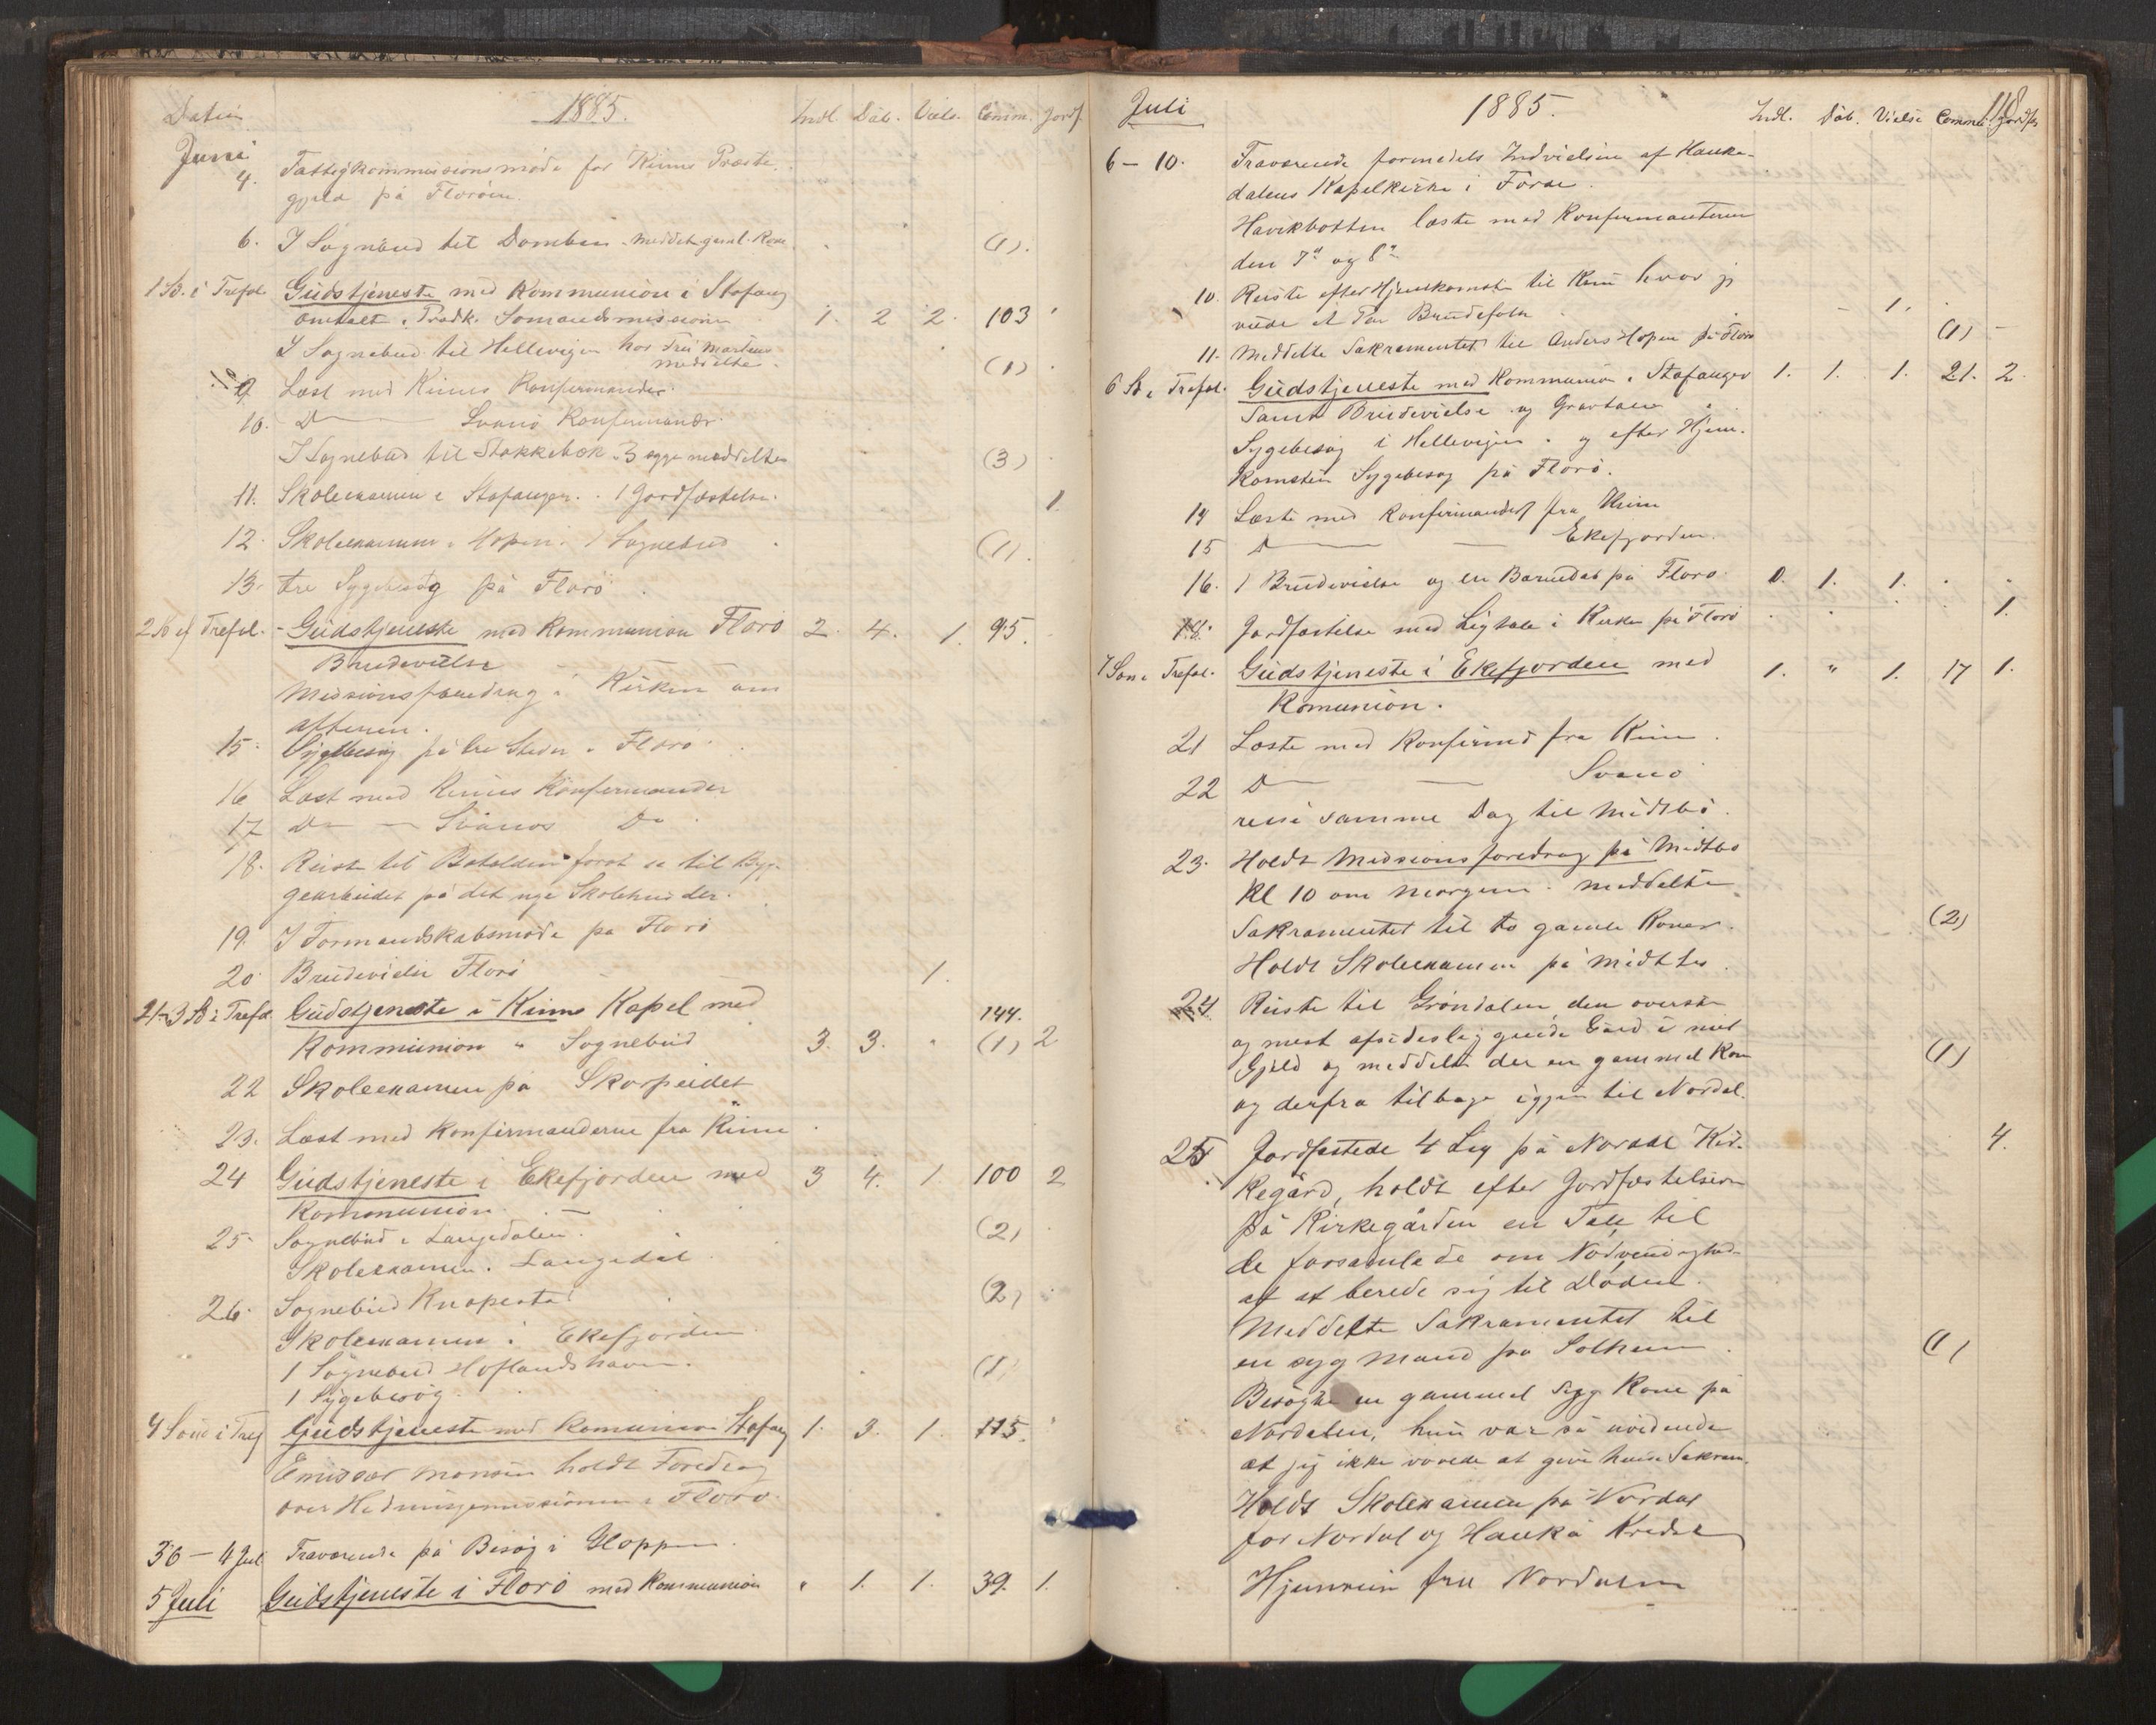 Datum 1885. Indl. Dåb. Viels. Comm. Jordf.
Juni
4. Fattigkommissionsmøde for Kinns Præste-
gjeld på Florøen.
6. I Sognebud til Domben. meddelt gaml. Kone (1).
1 S. e Trefol. Gudstjeneste med Kommunion i Stafang 1. 2 2. 103
omtalt i Prædk. Sømandsmissionen
I Sognebud til Hellevigen hos Fru Martens
meddelte. (1)
9. Læst med Kinns Konfirmander.
10. D Svanø Konfirmandr.
I Sognebud til Stokkebæk. 3 syge meddelte (3)
11. Skoleexamen i Stafanger. 1 Jordfæstelse. 1.
12. Skoleexamen i Hopen. 1 Sognebud (1).
13. tre Sygebesøg på Florø.
2 S ef Trefol. Gudstjeneste med Kommunion Florø 2. 4. 1. 95.
Brudevielse
Missionsforedrag i Kirken om
aftenen.
15. Sygebesøg på tre Steder i Florø
16 Læst med Kinns Konfirmander
17 D Svanøs Do
18. Reiste til Batalden for at se til Byg-
gearbeidet på det nye Skolehus der.
19. I Formandskabsmøde på Florø
20. Brudevielse Florø 1.
21-3 S i Trefol. Gudstjeneste i Kinns Kapel med 144.
Kommunion & Sognebud 3. 3. (1) 2
22 Skoleexamen på Skorpeidet
23. Læst med Konfirmanderne fra Kinn
24 Gudstjeneste i Ekefjorden med 3 4. 1. 100 2
Kommunion.
25 Sognebud i Langedalen. (2)
Skoleexamen i Langedal
26. Sognebud Knapestad (2)
Skoleexamen i Ekefjorden
1 Sognebud Hoflandshavn. (1)
1 Sygebesøg.
4 Sønd i Tref Gudstjeneste med Komunion Stafang 1. 3. 1. 115.
Emissær Monsen holdt Foredrag
over Hedningemissionen i Florø.
30 - 4 Jul Fraværende på Besøg i Gloppen.
5 Juli Gudstjeneste i Florø med Kommunion 1. 1. 39. 1.
Juli 1885. Indl. Dåb. Vielse Commu. Jordfs
118
6 - 10. Fraværende formedels Indvielsen af Hauke-
dalens Kapelkirke i Førde.
Havikbotten læste med Konfirmanterne
den 7de og 8de
10. Reiste efter Hjemkomsten til Kinn hvor jeg
viede et Par Brudefolk 1.
11. Meddelte Sakramentet til Anders Hopen på Florø (1)
6 S. e Trefol. Gudstjeneste med Kommunion i Stafanger 1. 1. 1. 21. 2.
samt Brudevielse og Gravtale
Sygebesøg i Hellevigen. og efter Hjem-
komsten Sygebesøg på Florø.
14 Læste med Konfirmander fra Kinn
15 D Ekefjorden.
16. 1 Brudevielse og en Barnedåb på Florø 0. 1. 1.
18. Jordfæstelse med Ligtale i Kirken på Florø 1.
7 Søn e Trefol. Gudstjeneste i Ekefjorden med 1. " 1. 17 1.
Komunion.
21 Læste med Konfirmd fra Kinn.
22 D Svanø
reise samme Dag til Midtbø.
23. Holdt Missionsforedrag på Midtbø
Kl 10 om Morgenen. meddelte
Sakramentet til to gamle Koner. (2)
Holdt Skoleexamen på Midtbø.
24 Reiste til Grøndalen, den øverste
og mest afsidesliggende Gård i mit
Gjeld og meddelte der en gammel Kone (1)
og derfra tilbage igjen til Nordal.
25 Jordfæstede 4 Lig på Nordal Kir- 4.
kegård, holdt efter Jordfæstelsen
på Kirkegården en Tale til
de forsamlede om Nødvendighed-
af at berede sig til Døden.
Meddelte Sakramentet til
en syg Mand på Solheim. (1)
Besøgte en gammel syg Kone på
Nordalen, hun var så uvidende
at jeg ikke vovede at give hende Sakram.
Holdt Skoleexamen på Nordal
for Nordal og Haukå Kredse
Hjemreise fra Nordalen